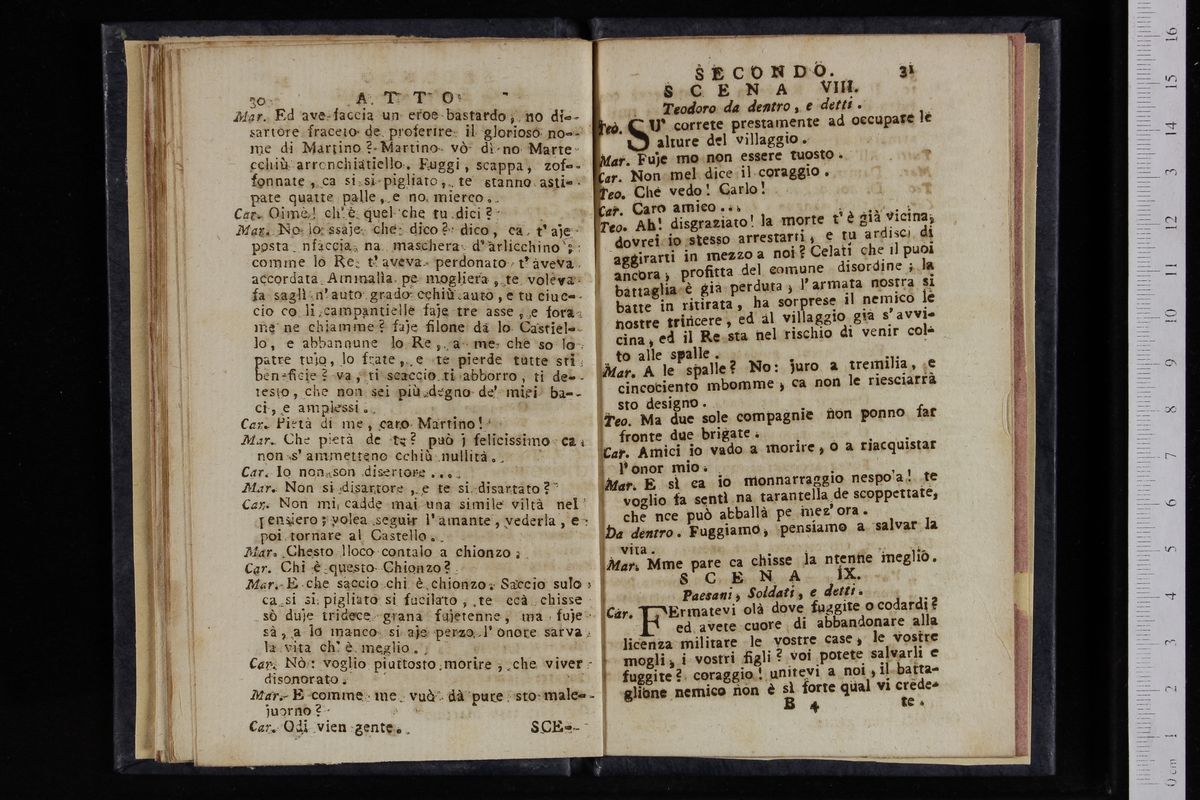 30 ATTO
Mar. Ed ave faccia un eroe bastardo, no di-
sartore fraceto de proferire il glorioso no-
me di Martino? Martino vò dì no Marte
cchiù arronchiatiello. Fuggi, scappa, zof-
fonnate, ca si si pigliato, te stanno asti-
pate quatte palle, e no mierco.
Car. Oimè! ch'è quel che tu dici?
Mar. No lo ssaje che dico? dico, ca t'aje
posta nfaccia na maschera d'arlicchino;
comme lo Re t'aveva perdonato t'aveva
accordata Ammalia pe mogliera, te voleva
fa sagli n'auto grado cchiù auto, e tu ciuc-
cio co li campantielle faje tre asse, e fora
me ne chiamme? faje filone da lo Castiel-
lo, e abbannune lo Re, a me che so lo
patre tujo, lo frate, e te pierde tutte sti
beneficie? va, ti scaccio ti abborro, ti de-
testo, che non sei più degno de' miei ba-
ci, e amplessi.
Car. Pietà di me, caro Martino!
Mar. Che pietà de te? può j felicissimo ca
non s'ammetteno cchiù nullità.
Car. Io non son disertore....
Mar. Non si disartore, e te si disartato?
Car. Non mi cadde mai una simile viltà nel
pensiero; volea seguir l'amante, vederla, e
poi tornare al Castello.
Mar. Chesto lloco contalo a chionzo.
Car. Chi è questo Chionzo?
Mar. E che saccio chi è chionzo. Saccio sulo
ca si si pigliato si fucilato, te ccà chisse
sò duje tridece grana fujetenne, ma fuje
sà, a lo manco si aje perzo l'onore sarva
la vita ch'è meglio.
Car. Nò: voglio piuttosto morire, che viver
disonorato.
Mar. E comme me vuò dà pure sto male-
juorno?
Car. Odi vien gente.
SCE-
SECONDO. 31
SCENA VIII.
Teodoro da dentro, e detti.
Teo. SU' correte prestamente ad occupare le
alture del villaggio.
Mar. Fuje mo non essere tuosto.
Car. Non mel dice il coraggio.
Teo. Che vedo! Carlo!
Car. Caro amico...
Teo. Ah! disgraziato! la morte t'è già vicina,
dovrei io stesso arrestarti, e tu ardisci di
aggirarti in mezzo a noi? Celati che il puoi
ancora, profitta del comune disordine; la
battaglia è già perduta, l'armata nostra si
batte in ritirata, ha sorprese il nemico le
nostre trincere, ed al villaggio già s'avvi-
cina, ed il Re sta nel rischio di venir col-
to alle spalle.
Mar. A le spalle? No: juro a tremilia, e
cincociento mbomme, ca non le riesciarrà
sto designo.
Teo. Ma due sole compagnie non ponno far
fronte due brigate.
Car. Amici io vado a morire, o a riacquistar
l'onor mio.
Mar. E sì ca io monnarraggio nespo'a! te
voglio fa sentì na tarantella de scoppettate,
che nce può abballà pe mez'ora.
Da dentro. Fuggiamo, pensiamo a salvar la
vita.
Mar. Mme pare ca chisse la ntenne meglio.
SCENA IX.
Paesani, Soldati, e detti.
Car. FErmatevi olà dove fuggite o codardi?
ed avete cuore di abbandonare alla
licenza militare le vostre case, le vostre
mogli, i vostri figli? voi potete salvarli e
fuggite? coraggio! unitevi a noi, il batta-
glione nemico non è sì forte qual vi crede-
B 4 te.
0 cm 1 2 3 4 5 6 7 8 9 10 11 12 13 14 15 16